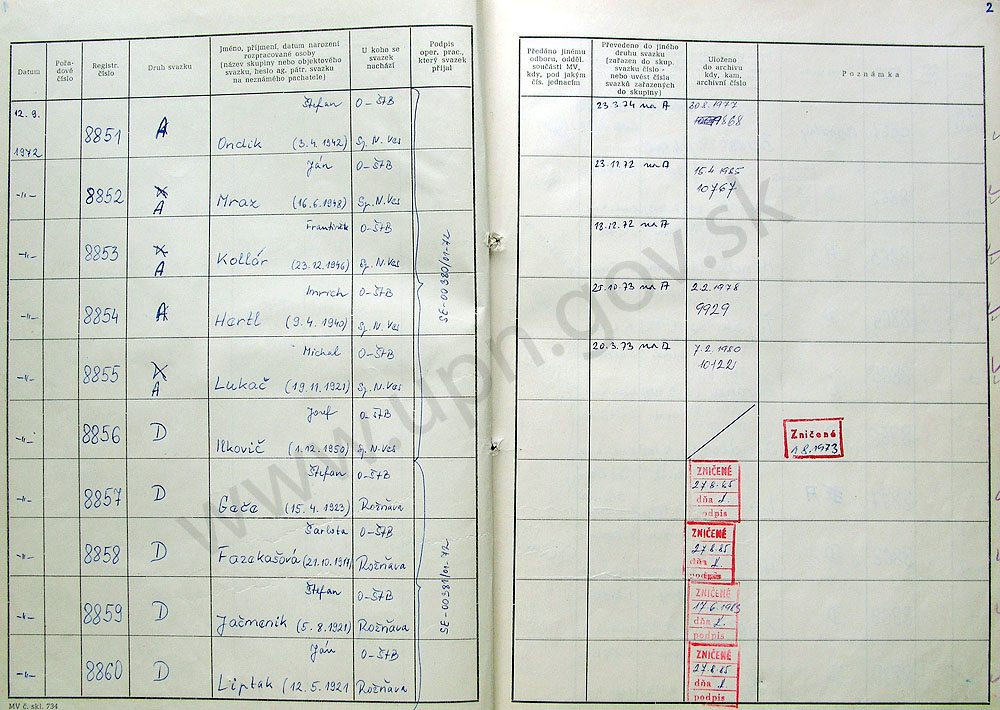 1
2
Datum
Pořa-
dové
číslo
Registr.
číslo
Druh svazku
Jméno, příjmení, datum narození
rozpracované osoby
(název skupiny nebo objektového
svazku, heslo ag. pátr. svazku
na neznámého pachatele)
U koho se
svazek
nachází
Podpis
oper. prac.,
který svazek
přijal
Předáno jinému
odboru, odděl.
součásti MV,
kdy, pod jakým
čís. jednacím
Převedeno do jiného
druhu svazku
(zařazen do skup.
svazku číslo -
nebo uvést čísla
svazků zařazených
do skupiny)
Uloženo
do archivu
kdy, kam,
archivní číslo
Poznámka
12. 9.
1972
8851
A
Štefan
Ondik (3. 4. 1942)
O-ŠtB
Sp. N. Ves
23.3.74 na A
30.8.1977
868
-"-
8852
A
Ján
Mraz (16. 6. 1948)
O-ŠtB
Sp. N. Ves
23.11.72 na A
15.4.1985
10767
-"-
8853
A
František
Kollár (23. 12. 1946)
O-ŠtB
Sp. N. Ves
18.12.72 na A
-"-
8854
A
Imrich
Hertl (9. 4. 1940)
O-ŠtB
Sp. N. Ves
25.10.73 na A
2.2.1978
9929
-"-
8855
A
Michal
Lukáč (19. 11. 1921)
O-ŠtB
Sp. N. Ves
20.3.73 na A
7.2.1980
10122
-"-
8856
D
Jozef
Ilkovič (1. 12. 1950)
O-ŠtB
Sp. N. Ves
SE-00380/01-72
Zničené
1.8.1973
-"-
8857
D
Štefan
Gača (15. 4. 1923)
O-ŠtB
Rožňava
ZNIČENÉ
27.8.85
dňa
podpis
-"-
8858
D
Šarlota
Fazekašová (21. 10. 1917)
O-ŠtB
Rožňava
ZNIČENÉ
27.8.85
dňa
podpis
-"-
8859
D
Štefan
Jačmeník (5. 8. 1921)
O-ŠtB
Rožňava
ZNIČENÉ
17.6.1983
dňa
podpis
-"-
8860
D
Ján
Lipták (12. 5. 1921
O-ŠtB
Rožňava
SE-00381/01-72
ZNIČENÉ
27.8.85
dňa
podpis
MV č. skl. 734
www.upn.gov.sk